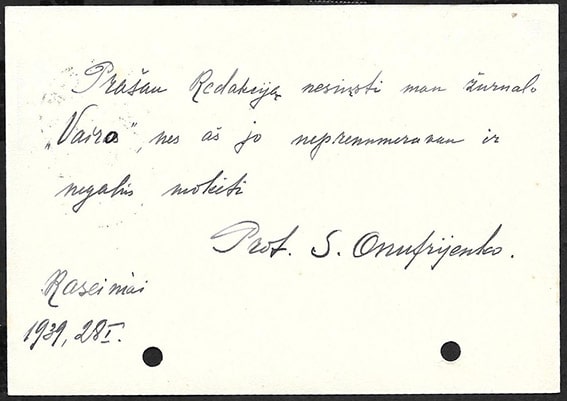 Prašau Redakciją nesiųsti man žurnalo
„Vairas", nes aš jo neprenumeravau ir
negaliu mokėti
Prot. S. Onufrijenko.
Raseiniai
1939, 28 I.